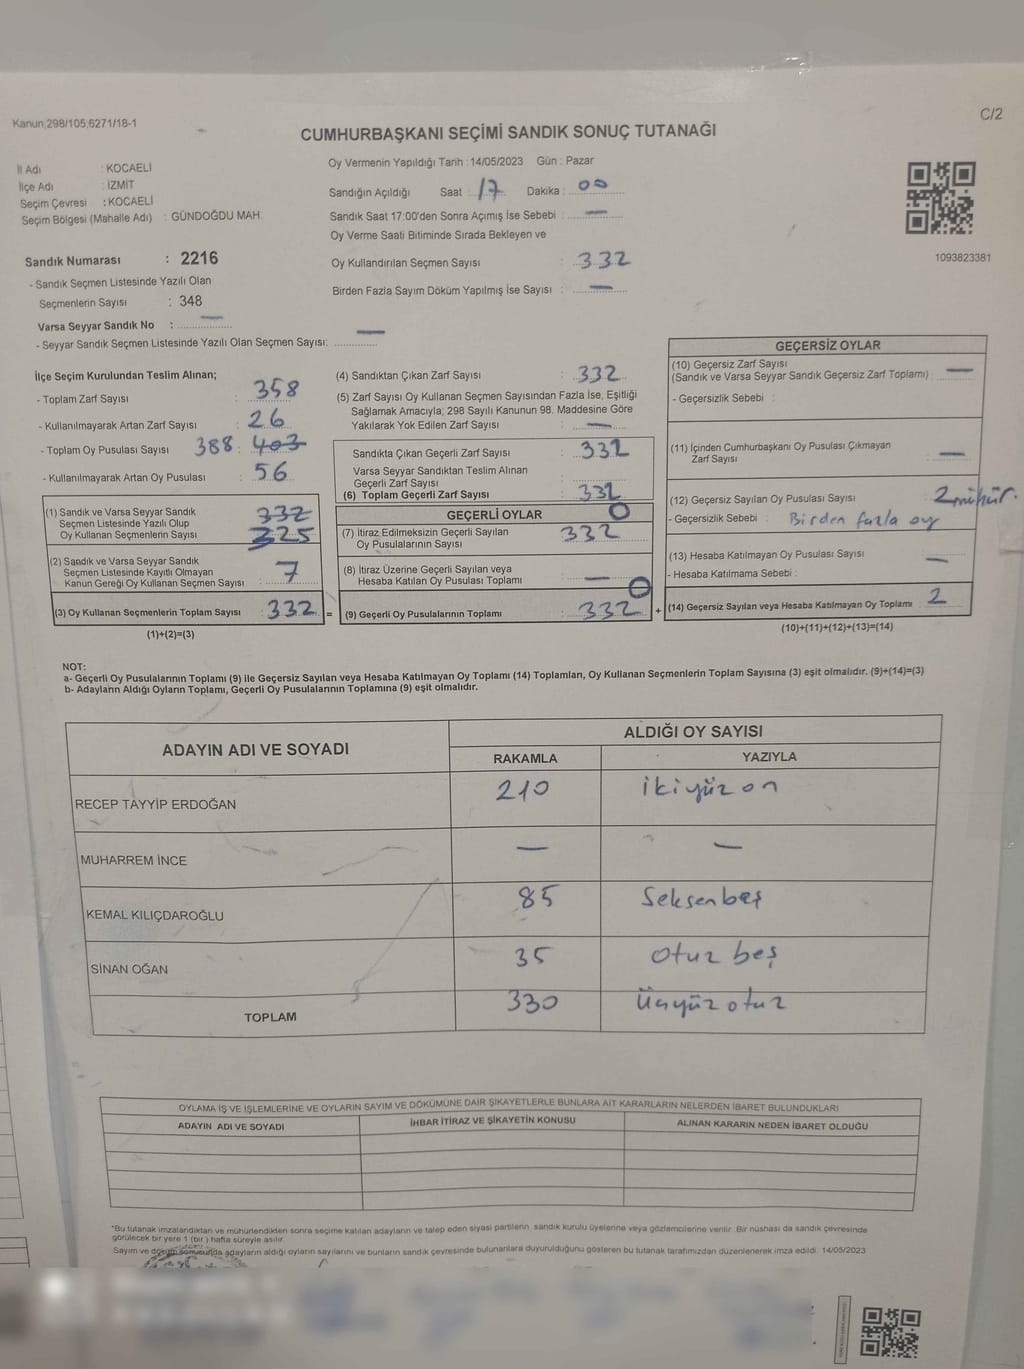 Kanun;298/105;6271/18-1
C/2
CUMHURBAŞKANI SEÇİMİ SANDIK SONUÇ TUTANAĞI
İl Adı : KOCAELİ
İlçe Adı : İZMİT
Seçim Çevresi : KOCAELİ
Seçim Bölgesi (Mahalle Adı) : GÜNDOĞDU MAH.
Oy Vermenin Yapıldığı Tarih :14/05/2023 Gün : Pazar
Sandığın Açıldığı Saat : 17 Dakika : 00
Sandık Saat 17:00'den Sonra Açımış İse Sebebi : —
Oy Verme Saati Bitiminde Sırada Bekleyen ve
Oy Kullandırılan Seçmen Sayısı : 332
Birden Fazla Sayım Döküm Yapılmış İse Sayısı : —
1093823381
Sandık Numarası : 2216
- Sandık Seçmen Listesinde Yazılı Olan
Seçmenlerin Sayısı : 348
Varsa Seyyar Sandık No : —
- Seyyar Sandık Seçmen Listesinde Yazılı Olan Seçmen Sayısı: —
İlçe Seçim Kurulundan Teslim Alınan;
- Toplam Zarf Sayısı : 358
- Kullanılmayarak Artan Zarf Sayısı : 26
- Toplam Oy Pusulası Sayısı 388 : 403
- Kullanılmayarak Artan Oy Pusulası : 56
(1) Sandık ve Varsa Seyyar Sandık
Seçmen Listesinde Yazılı Olup
Oy Kullanan Seçmenlerin Sayısı : 332 325
(2) Sandık ve Varsa Seyyar Sandık
Seçmen Listesinde Kayıtlı Olmayan
Kanun Gereği Oy Kullanan Seçmen Sayısı : 7
(3) Oy Kullanan Seçmenlerin Toplam Sayısı : 332 =
(1)+(2)=(3)
(4) Sandıktan Çıkan Zarf Sayısı : 332
(5) Zarf Sayısı Oy Kullanan Seçmen Sayısından Fazla İse, Eşitliği
Sağlamak Amacıyla; 298 Sayılı Kanunun 98. Maddesine Göre
Yakılarak Yok Edilen Zarf Sayısı : —
Sandıkta Çıkan Geçerli Zarf Sayısı : 332
Varsa Seyyar Sandıktan Teslim Alınan
Geçerli Zarf Sayısı :
(6) Toplam Geçerli Zarf Sayısı : 332
GEÇERLİ OYLAR
(7) İtiraz Edilmeksizin Geçerli Sayılan
Oy Pusulalarının Sayısı : 332
(8) İtiraz Üzerine Geçerli Sayılan veya
Hesaba Katılan Oy Pusulası Toplamı : —
(9) Geçerli Oy Pusulalarının Toplamı : 332 +
GEÇERSİZ OYLAR
(10) Geçersiz Zarf Sayısı
(Sandık ve Varsa Seyyar Sandık Geçersiz Zarf Toplamı) : —
- Geçersizlik Sebebi :
(11) İçinden Cumhurbaşkanı Oy Pusulası Çıkmayan
Zarf Sayısı : —
(12) Geçersiz Sayılan Oy Pusulası Sayısı : 2 mühür.
- Geçersizlik Sebebi : Birden fazla oy
(13) Hesaba Katılmayan Oy Pusulası Sayısı : —
- Hesaba Katılmama Sebebi :
(14) Geçersiz Sayılan veya Hesaba Katılmayan Oy Toplamı : 2
(10)+(11)+(12)+(13)=(14)
NOT:
a- Geçerli Oy Pusulalarının Toplamı (9) ile Geçersiz Sayılan veya Hesaba Katılmayan Oy Toplamı (14) Toplamları, Oy Kullanan Seçmenlerin Toplam Sayısına (3) eşit olmalıdır. (9)+(14)=(3)
b- Adayların Aldığı Oyların Toplamı, Geçerli Oy Pusulalarının Toplamına (9) eşit olmalıdır.
ADAYIN ADI VE SOYADI
ALDIĞI OY SAYISI
RAKAMLA YAZIYLA
RECEP TAYYİP ERDOĞAN 210 ikiyüz on
MUHARREM İNCE — —
KEMAL KILIÇDAROĞLU 85 Seksenbeş
SİNAN OĞAN 35 otuz beş
TOPLAM 330 Üçyüz otuz
OYLAMA İŞ VE İŞLEMLERİNE VE OYLARIN SAYIM VE DÖKÜMÜNE DAİR ŞİKAYETLERLE BUNLARA AİT KARARLARIN NELERDEN İBARET BULUNDUKLARI
ADAYIN ADI VE SOYADI İHBAR İTİRAZ VE ŞİKAYETİN KONUSU ALINAN KARARIN NEDEN İBARET OLDUĞU
*Bu tutanak imzalandıktan ve mühürlendikten sonra seçime katılan adayların ve talep eden siyasi partilerin sandık kurulu üyelerine veya gözlemcilerine verilir. Bir nüshası da sandık çevresinde
görülecek bir yere 1 (bir) hafta süreyle asılır.
Sayım ve döküm sonucunda adayların aldığı oyların sayılarını ve bunların sandık çevresinde bulunanlara duyurulduğunu gösteren bu tutanak tarafımızdan düzenlenerek imza edildi. 14/05/2023